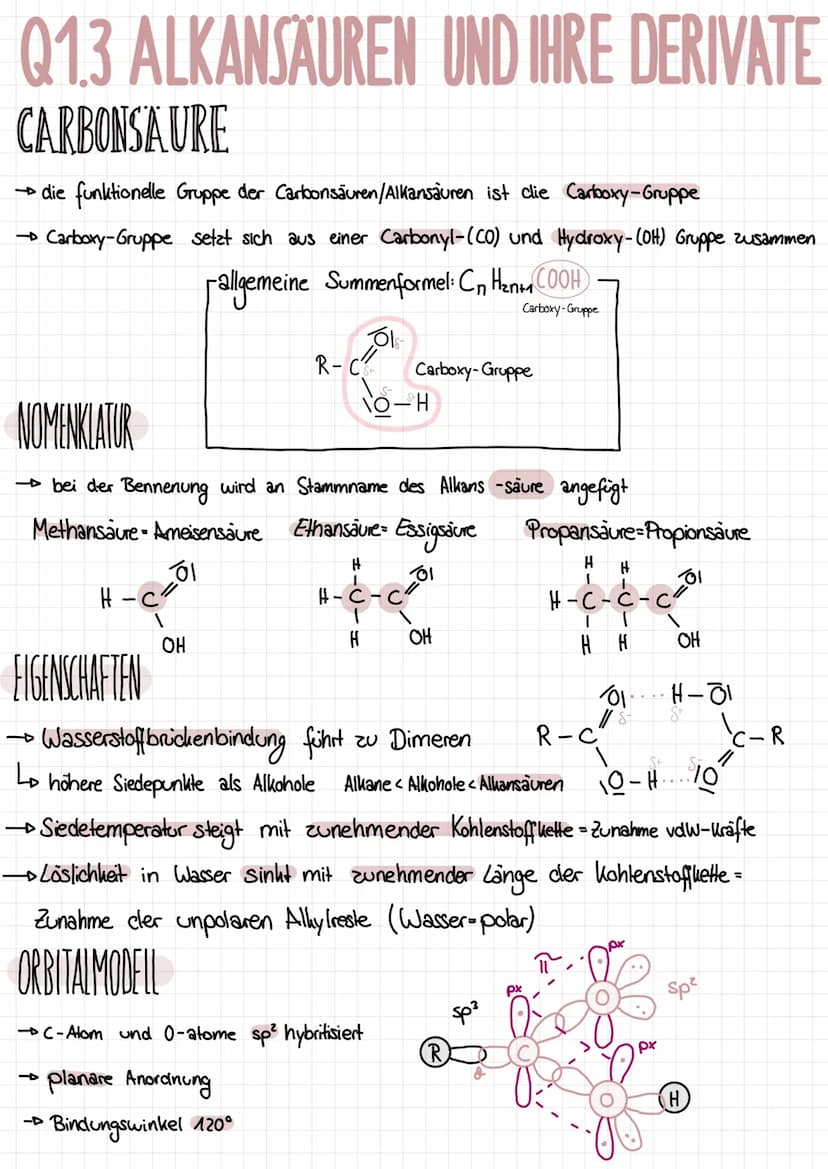 Q1.3 ALKANSÄUREN UND IHRE DERIVATE
CARBONSÄURE
→ die funktionelle Gruppe der Carbonsäuren/Alkansäuren ist die Carboxy-Gruppe
→ Carboxy-Gruppe setzt sich aus einer Carbonyl-(CO) und Hydroxy-(OH) Gruppe zusammen
allgemeine Summenformel: Cn H2n+1 COOH
Carboxy-Gruppe
O δ-
R - C δ+ Carboxy-Gruppe
δ- δ+
O - H
NOMENKLATUR
→ bei der Bennenung wird an Stammname des Alkans -säure angefügt
Methansäure = Ameisensäure Ethansäure = Essigsäure Propansäure = Propionsäure
H H H
O O O
H - C H - C - C H - C - C - C
OH H OH H H OH
EIGENSCHAFTEN
O .... H - O
δ- δ+
→ Wasserstoffbrückenbindung führt zu Dimeren R - C C - R
δ+ δ-
↳ höhere Siedepunkte als Alkohole Alkane < Alkohole < Alkansäuren O - H .... O
→ Siedetemperatur steigt mit zunehmender Kohlenstoffkette = Zunahme vdW-Kräfte
→ Löslichkeit in Wasser sinkt mit zunehmender Länge der Kohlenstoffkette =
Zunahme der unpolaren Alkylreste (Wasser = polar)
ORBITALMODELL
px
π
O sp²
px
sp³
→ C-Atom und O-atome sp² hybritisiert
px
R C
→ planare Anordnung
O H
→ Bindungswinkel 120°